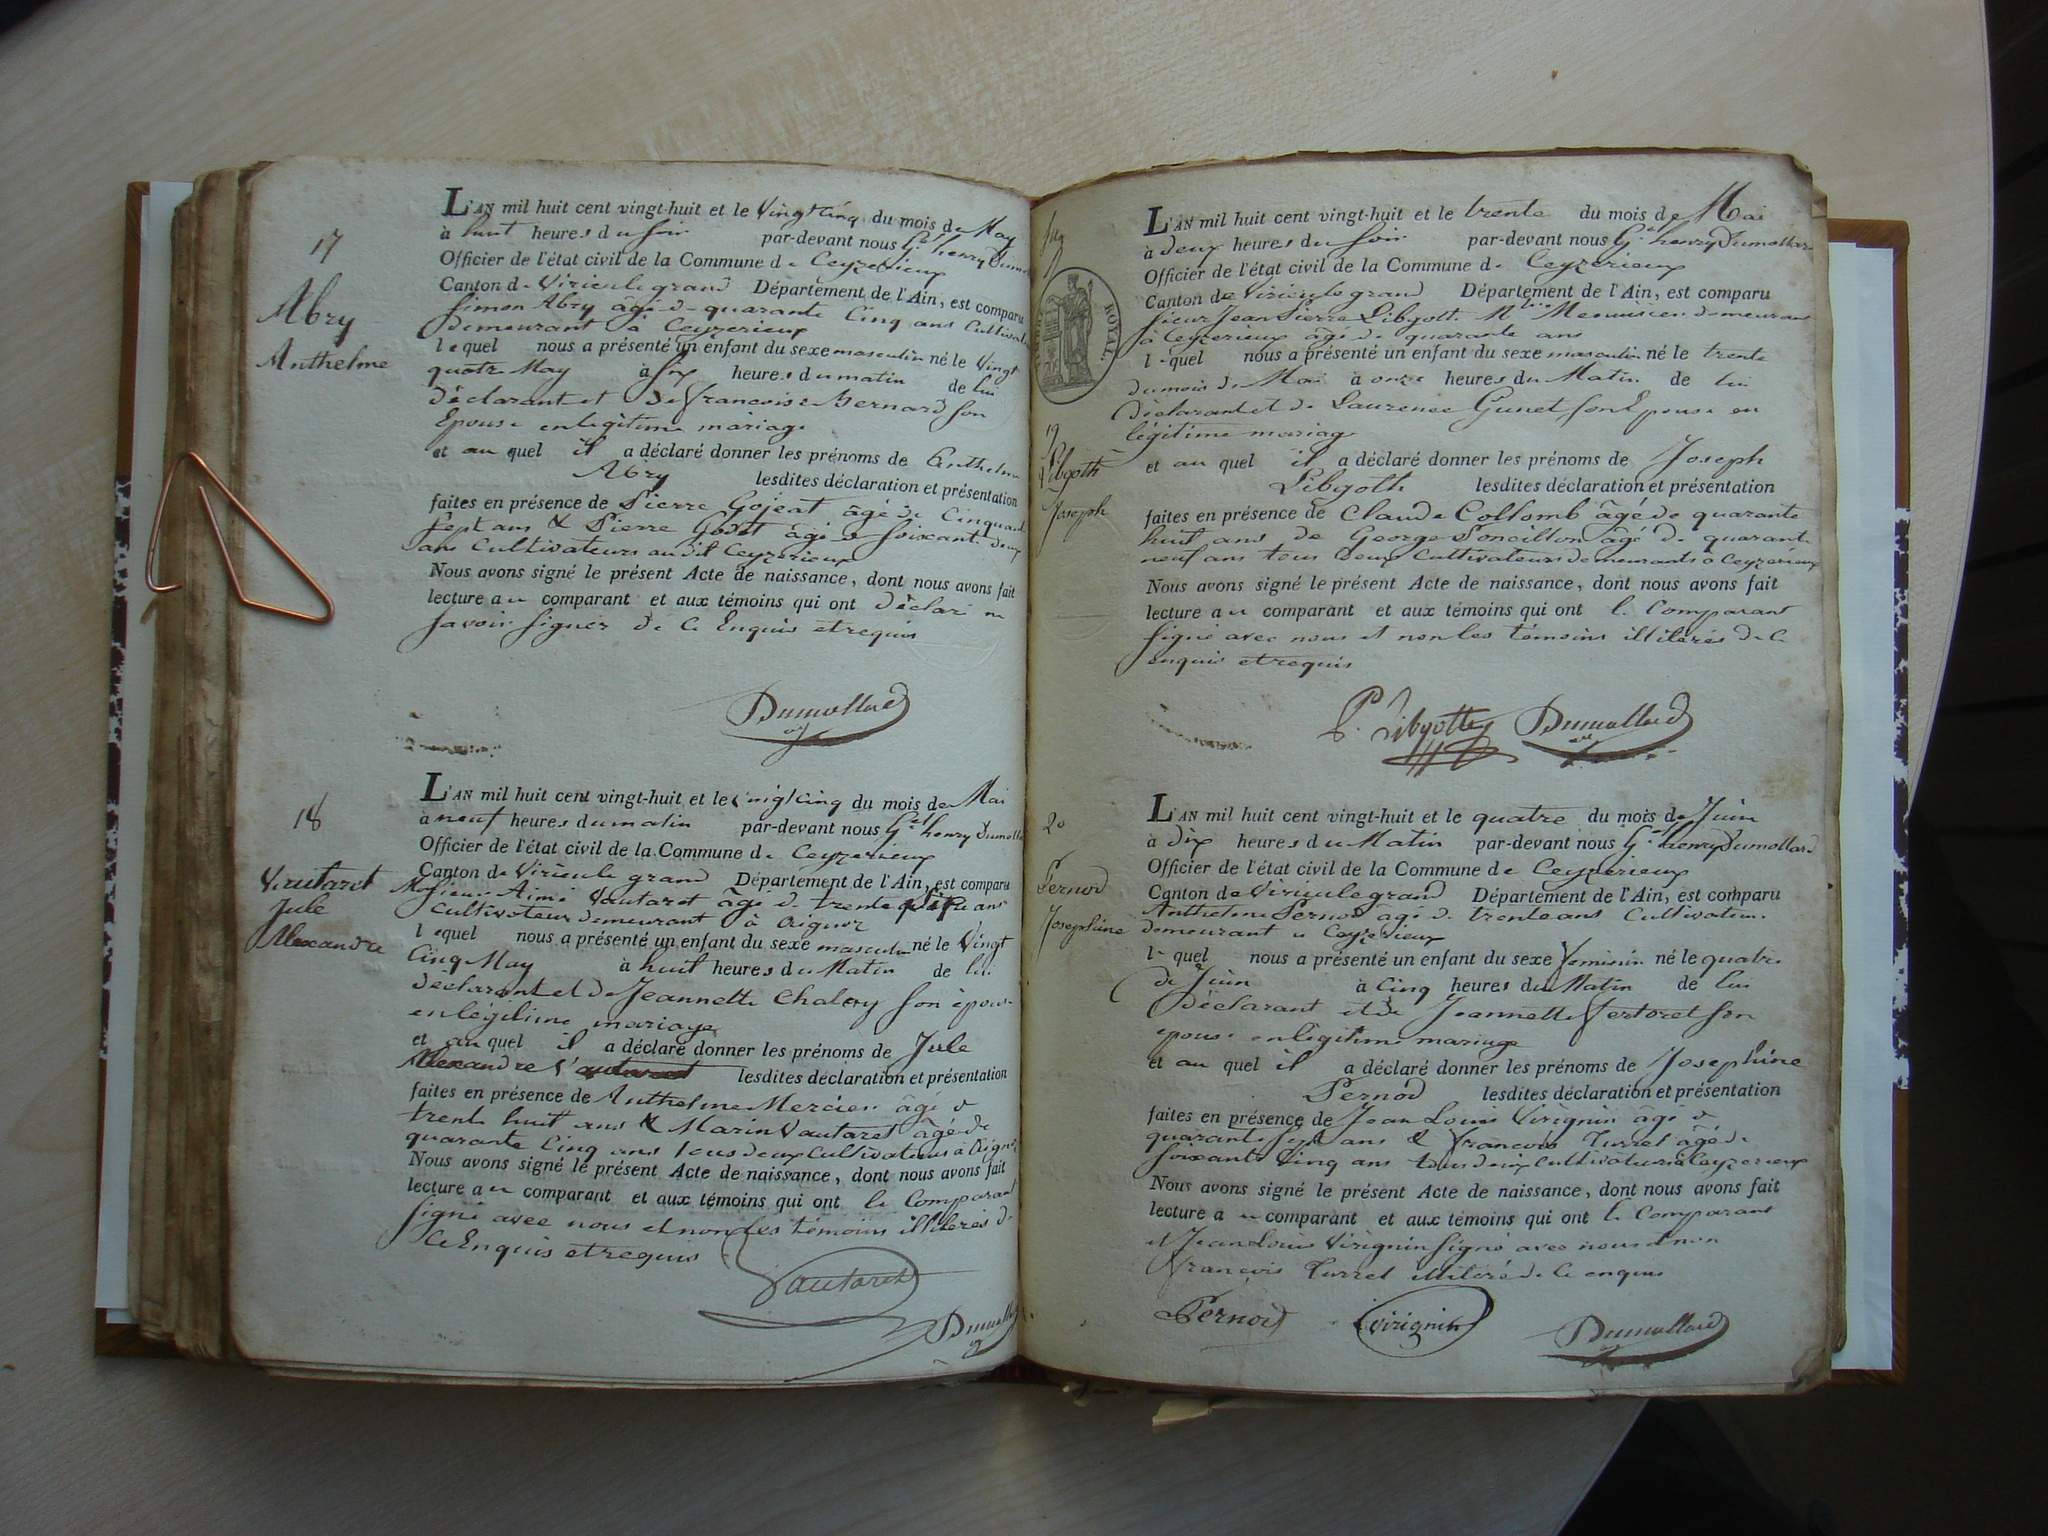 17
Abry
Anthelme
L'AN mil huit cent vingt-huit et le vingt cinq du mois de May
à huit heures du soir par-devant nous Gel henry Dumo
Officier de l'état civil de la Commune de Ceyzerieux
Canton de Virieu le grand Département de l'Ain, est comparu
Simon Abry âgé de quarante cinq ans Cultivat
demeurant à Ceyzerieux
lequel nous a présenté un enfant du sexe masculin né le vingt
quatre May à six heures du matin de lui
déclarant et de francoise Bernard son
Epouse en legitime mariage
et au quel il a déclaré donner les prénoms de Anthelme
Abry lesdites déclaration et présentation
faites en présence de Pierre Gojeat âgé de Cinquante
sept ans & Pierre Godet âgé de soixante deux
ans Cultivateurs audit Ceyzerieux
Nous avons signé le présent Acte de naissance, dont nous avons fait
lecture au comparant et aux témoins qui ont déclaré ne
savoir signer de ce Enquis et requis
Dumollard
18
Vautaret
Jule
Alexandre
L'AN mil huit cent vingt-huit et le vingt cinq du mois de Mai
à neuf heures du matin par-devant nous Gel henry Dumolla
Officier de l'état civil de la Commune de Ceyzerieux
Canton de Virieu le grand Département de l'Ain, est comparu
Aimé Vautaret âgé de trente ans
cultivateur demeurant à Aignoz
lequel nous a présenté un enfant du sexe masculin né le vingt
Cinq May à huit heures du Matin de lui
déclarant et de Jeannette Chaley son épouse
en légitime mariage
et au quel il a déclaré donner les prénoms de Jule
Alexandre Vautaret lesdites déclaration et présentation
faites en présence de Anthelme Mercier âgé de
trente huit ans & Marin Vautaret âgé de
quarante Cinq ans tous deux Cultivateurs à Aignoz
Nous avons signé le présent Acte de naissance, dont nous avons fait
lecture au comparant et aux témoins qui ont le Comparant
signé avec nous et non les témoins illiterés de
Ce Enquis et requis
Vautaret
Dumollard
ROYAL.
19
Libgoth
Joseph
L'AN mil huit cent vingt-huit et le trente du mois de Mai
à deux heures du soir par-devant nous Gel henry Dumollard
Officier de l'état civil de la Commune de Ceyzerieux
Canton de Virieu le grand Département de l'Ain, est comparu
Sieur Jean Pierre Libgoth Menuisier demeurant
à Ceyzerieux âgé de quarante ans
lequel nous a présenté un enfant du sexe masculin né le trente
du mois de Mai à onze heures du Matin de lui
déclarant et de Laurence Gunet son Epouse en
légitime mariage
et au quel il a déclaré donner les prénoms de Joseph
Libgoth lesdites déclaration et présentation
faites en présence de Claude Collomb âgé de quarante
huit ans de George Poncillon âgé de quarante
neuf ans tous deux Cultivateurs demeurants à Ceyzerieux
Nous avons signé le présent Acte de naissance, dont nous avons fait
lecture au comparant et aux témoins qui ont le Comparant
signé avec nous et non les témoins illiterés de ce
enquis et requis
P. Libgotte Dumollard
20
Pernod
Josephine
L'AN mil huit cent vingt-huit et le quatre du mois de Juin
à dix heures du Matin par-devant nous Gel henry Dumollard
Officier de l'état civil de la Commune de Ceyzerieux
Canton de Virieu le grand Département de l'Ain, est comparu
Anthelme Pernod âgé de trente ans Cultivateur
demeurant à Ceyzerieux
lequel nous a présenté un enfant du sexe féminin né le quatre
de Juin à Cinq heures du Matin de lui
Déclarant et de Jeannette Fertoret son
épouse en légitime mariage
et au quel il a déclaré donner les prénoms de Josephine
Pernod lesdites déclaration et présentation
faites en présence de Jean Louis Virignin âgé de
quarante sept ans & francois Turrel âgé de
soixante Cinq ans tous deux Cultivateurs à Ceyzerieux
Nous avons signé le présent Acte de naissance, dont nous avons fait
lecture au comparant et aux témoins qui ont le Comparant
et Jean Louis Virignin signé avec nous & non
francois Turrel illiteré de Ce enquis
Pernod Virignin Dumollard